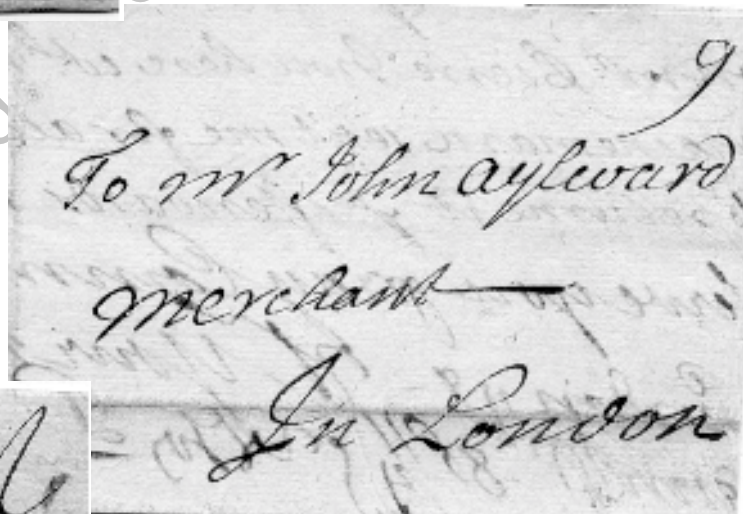 9
To Mr John Aylward
Merchant
In London